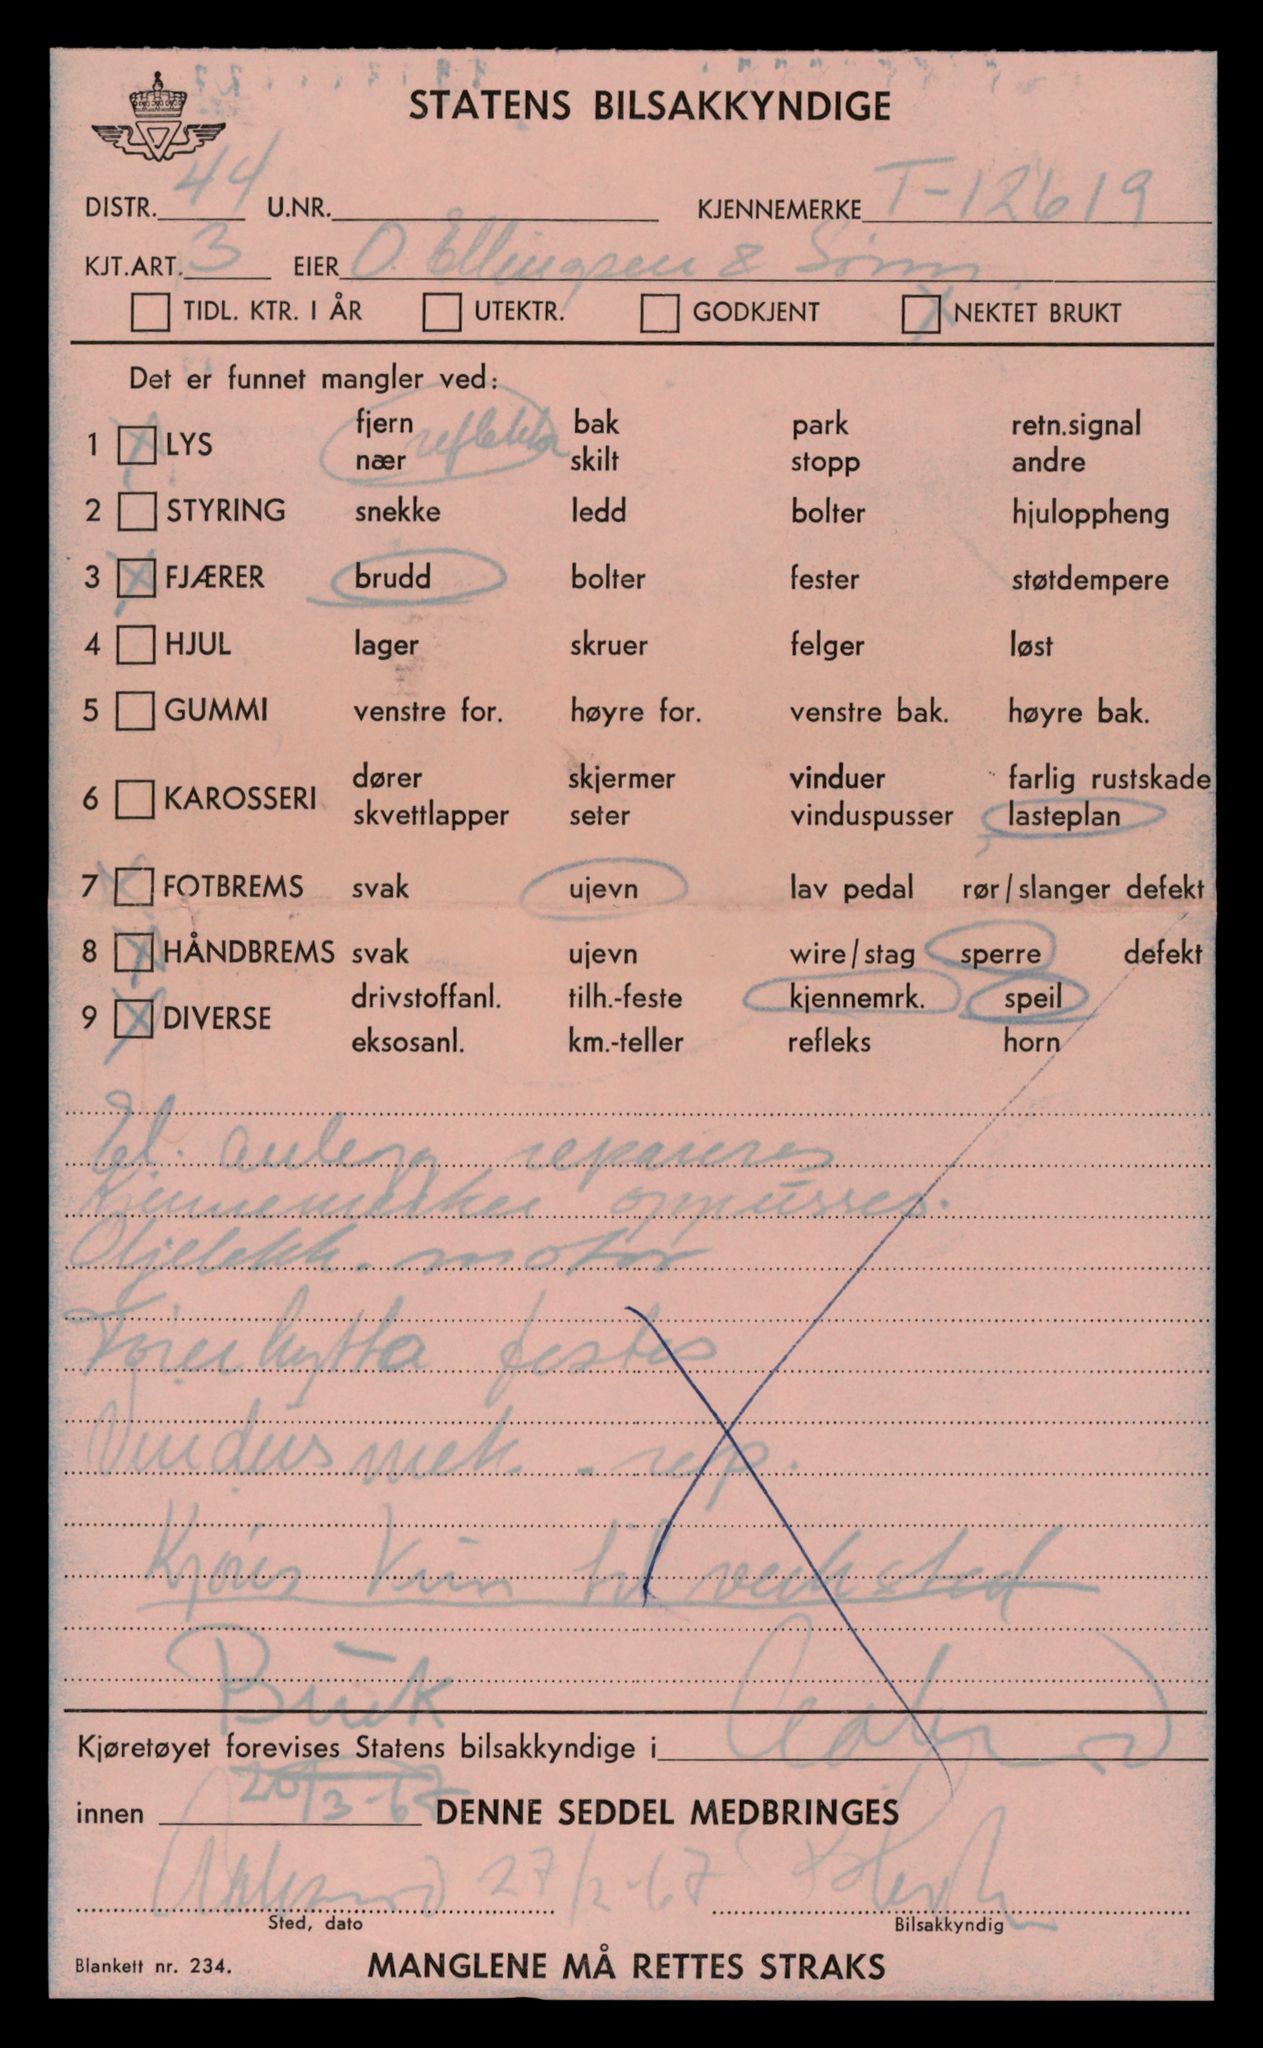 STATENS BILSAKKYNDIGE
DISTR. 44 U.NR. KJENNEMERKE T-12619
KJT.ART. 3 EIER O. Ellingsen & Sønn
TIDL. KTR. I ÅR UTEKTR. GODKJENT X NEKTET BRUKT
Det er funnet mangler ved:
fjern reflektor bak park retn.signal
1 X LYS
nær skilt stopp andre
2 STYRING snekke ledd bolter hjuloppheng
3 X FJÆRER brudd bolter fester støtdempere
4 HJUL lager skruer felger løst
5 GUMMI venstre for. høyre for. venstre bak. høyre bak.
dører skjermer vinduer farlig rustskade
6 KAROSSERI
skvettlapper seter vinduspusser lasteplan
7 X FOTBREMS svak ujevn lav pedal rør/slanger defekt
8 X HÅNDBREMS svak ujevn wire/stag sperre defekt
drivstoffanl. tilh.-feste kjennemrk. speil
9 X DIVERSE
eksosanl. km.-teller refleks horn
El. anlegg repareres
Kjennemerker oppusses.
Oljelekk. motor
Førerhytta festes
Vindusmek. rep.
Kjøres kun til verksted
Bruk
Kjøretøyet forevises Statens bilsakkyndige i
innen 20/3-67 DENNE SEDDEL MEDBRINGES
27/2-67
Sted, dato Bilsakkyndig
Blankett nr. 234. MANGLENE MÅ RETTES STRAKS